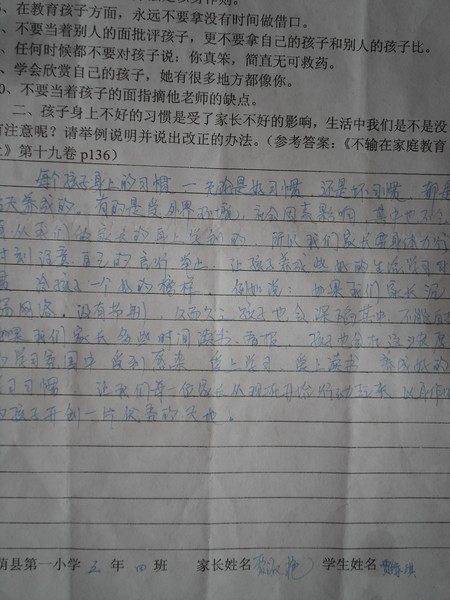 、在教育孩子方面，永远不要拿没有时间做借口。
、不要当着别人的面批评孩子，更不要拿自己的孩子和别人的孩子比。
、任何时候都不要对孩子说：你真笨，简直无可救药。
、学会欣赏自己的孩子，她有很多地方都像你。
0、不要当着孩子的面指摘他老师的缺点。
二、孩子身上不好的习惯是受了家长不好的影响，生活中我们是不是没
有注意呢？请举例说明并说出改正的办法。（参考答案：《不输在家庭教育
上》第十九卷 p136）
每个孩子身上的习惯 — 无论是好习惯，还是坏习惯，都是
天养成的。有的是受外界环境，社会因素影响，其中也不
从我们的家长的身上学到的，所以我们家长要身体力行
时刻注意自己的言行举止，让孩子养成些好的生活学习
给孩子一个好的榜样。例如说：如果我们家长沉
网络，没有节制，久而久之孩子也会深陷其中，不能自
如果我们家长多些时间读书，看报，孩子也会在这
学习氛围中 爱上学习，爱上读书，养成好的
学习习惯，让我们每一位家长从现在开始行动起来，以
的孩子开创一片 的天地。
荫县第一小学 五 年 四 班 家长姓名 学生姓名